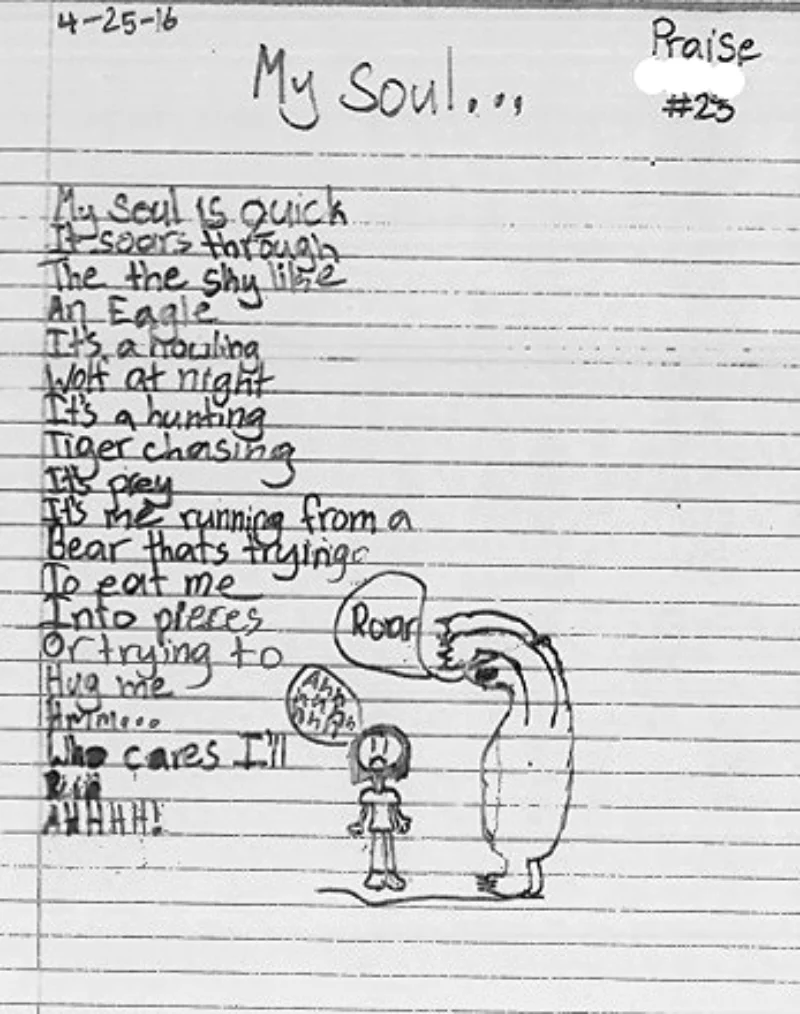 4-25-16
Praise
#23
My Soul...
My Soul is Quick
It soars through
The the sky like
An Eagle
It's a howling
Wolf at night
It's a hunting
Tiger chasing
It's prey
It's me running from a
Bear thats trying
To eat me
Into pieces
Or trying to
Hug me
Hmm...
Who cares I'll
Run
AHHHH!
Roar